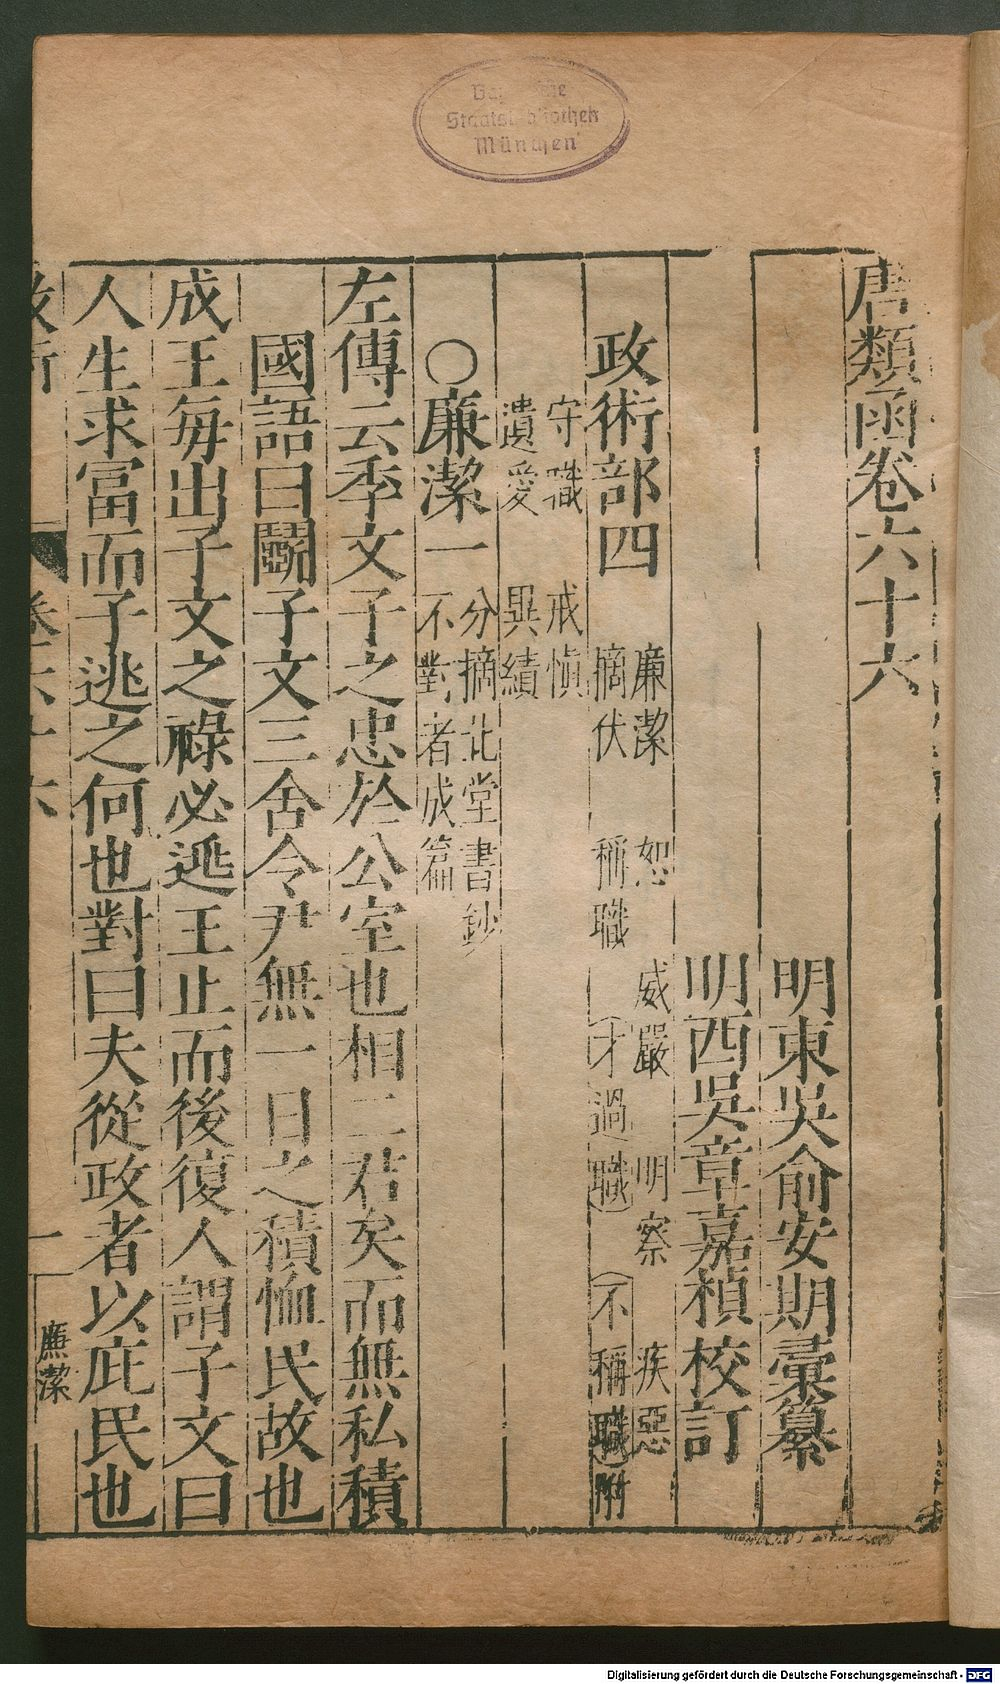 唐類函卷六十六
明東吳俞安期彙纂
明西吳章嘉楨校訂
政術部四
廉潔 恕 威嚴 明察 疾惡
摘伏 稱職 才過職 不稱職附
守職 戒慎
遺愛 異績
○廉潔一
分摘北堂書鈔
不對者成篇
左傳云季文子之忠於公室也相二君矣而無私積
國語曰鬬子文三舍令尹無一日之積恤民故也
成王每出子文之祿必逃王止而後復人謂子文曰
人生求富而子逃之何也對曰夫從政者以庇民也
政術
卷六十六
一
廉潔
Staatsbibliothek
München
Digitalisierung gefördert durch die Deutsche Forschungsgemeinschaft - DFG